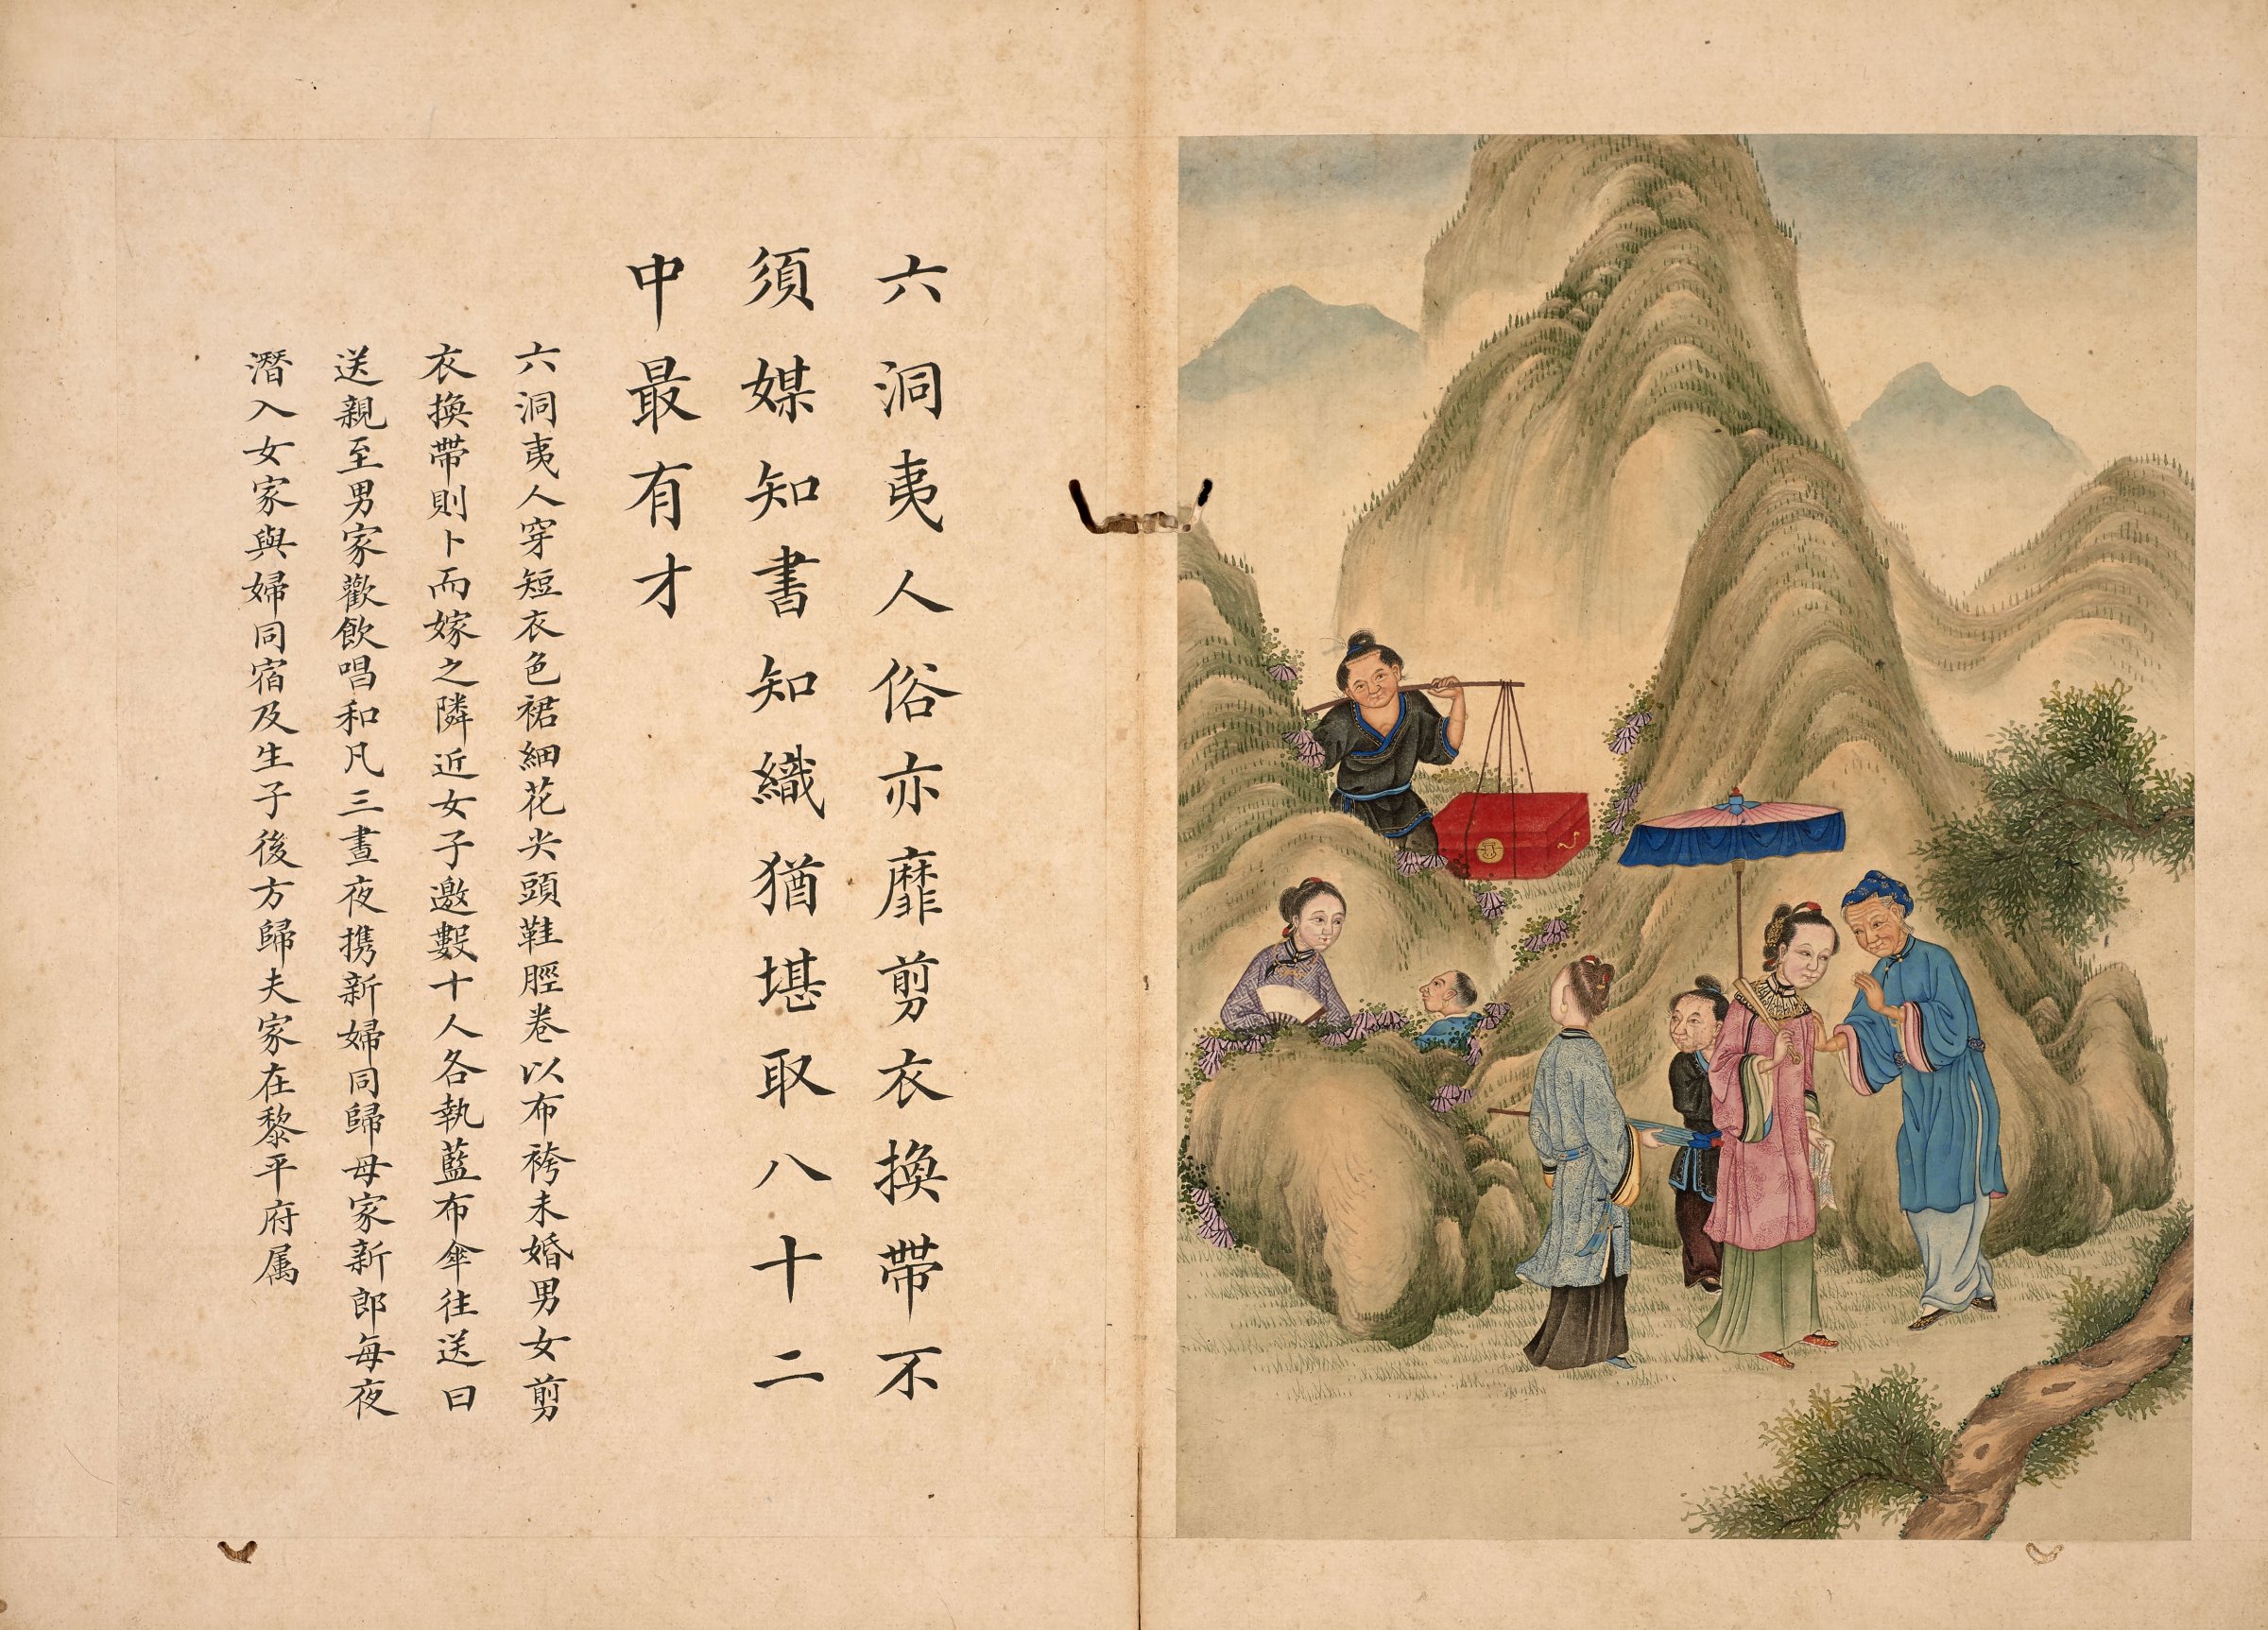 六洞夷人俗亦靡剪衣換帶不
須媒知書知織猶堪取八十二
中最有才
六洞夷人穿短衣色裙細花尖頭鞋脛卷以布袴未婚男女剪
衣換帶則卜而嫁之隣近女子邀數十人各執藍布傘往送曰
送親至男家歡飲唱和凡三晝夜携新婦同歸母家新郎每夜
潛入女家與婦同宿及生子後方歸夫家在黎平府属